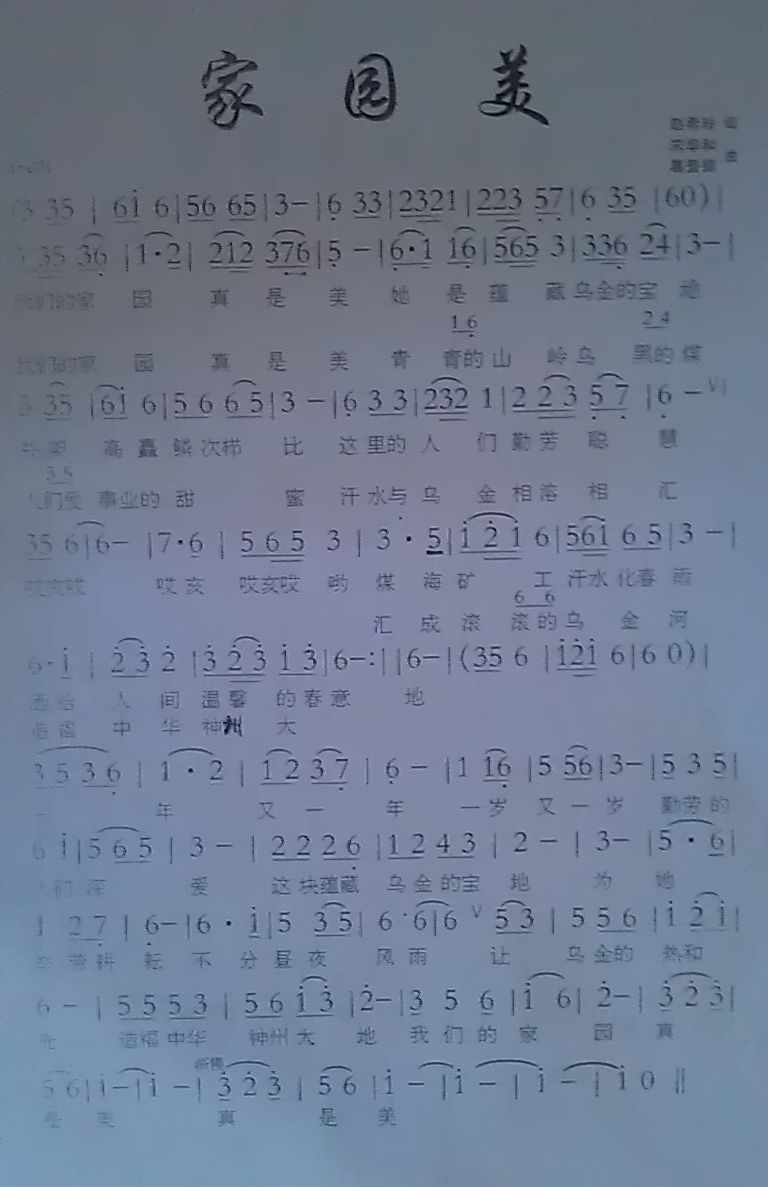 家 园 美
词
曲
3 35 | 61 6|56 65|3-|6 33|2321|223 57|6 35 |60)|
35 36 |1·2| 212 376|5 -|6·1 16|565 3|336 24|3-|
我们的家 园 真 是 美 她 是 蕴 藏乌金的宝 地
16 24
我们的家 园 真 是 美 青 青的山 岭乌 黑的煤
3 35 |61 6|5 6 6 5|3 -|6 3 3|232 1|2 2 3 5 7|6 - V|
井架 高矗鳞次栉 比 这里的人 们勤劳聪 慧
35
人们爱 事业的甜 蜜 汗水与乌 金相溶相 汇
35 6|6- |7·6 | 5 6 5 3 | 3 · 5|1 2 1 6|561 6 5|3 -|
哎亥哎 哎亥 哎亥哎 哟 煤 海 矿 工 汗水化春 雨
6 6
汇 成 滚 滚的乌 金 河
6·1 | 2 3 2 |3 2 3 1 3|6-:||6-|(35 6 |121 6|6 0)|
洒给 人 间 温馨 的春意 地
造福 中 华 神州 大
3 5 3 6 | 1 · 2 | 1 2 3 7 | 6 - |1 16 |5 56|3-|5 3 5|
一 年 又 一 年 一岁 又 一 岁 勤劳的
6 1|5 6 5 | 3 - | 2 2 2 6 |1 2 4 3 | 2 - | 3- |5 · 6|
人们 深 爱 这块蕴藏 乌金的宝 地 为 她
1 2 7 | 6-|6 · 1|5 3 5| 6 ·6|6 V 5 3 | 5 5 6 |1 2 1|
辛 劳耕 耘 不 分昼夜 风雨 让 乌金的 热和
6 - | 5 5 5 3 | 5 6 1 3 |2-|3 5 6 |1 6| 2-|3 2 3|
光 造福中华 神州大 地 我们的家 园 真
5 6|1-|1 -| 3 2 3 | 5 6 |1 -|1 -| 1 -|1 0 ‖
是 美 真 是 美